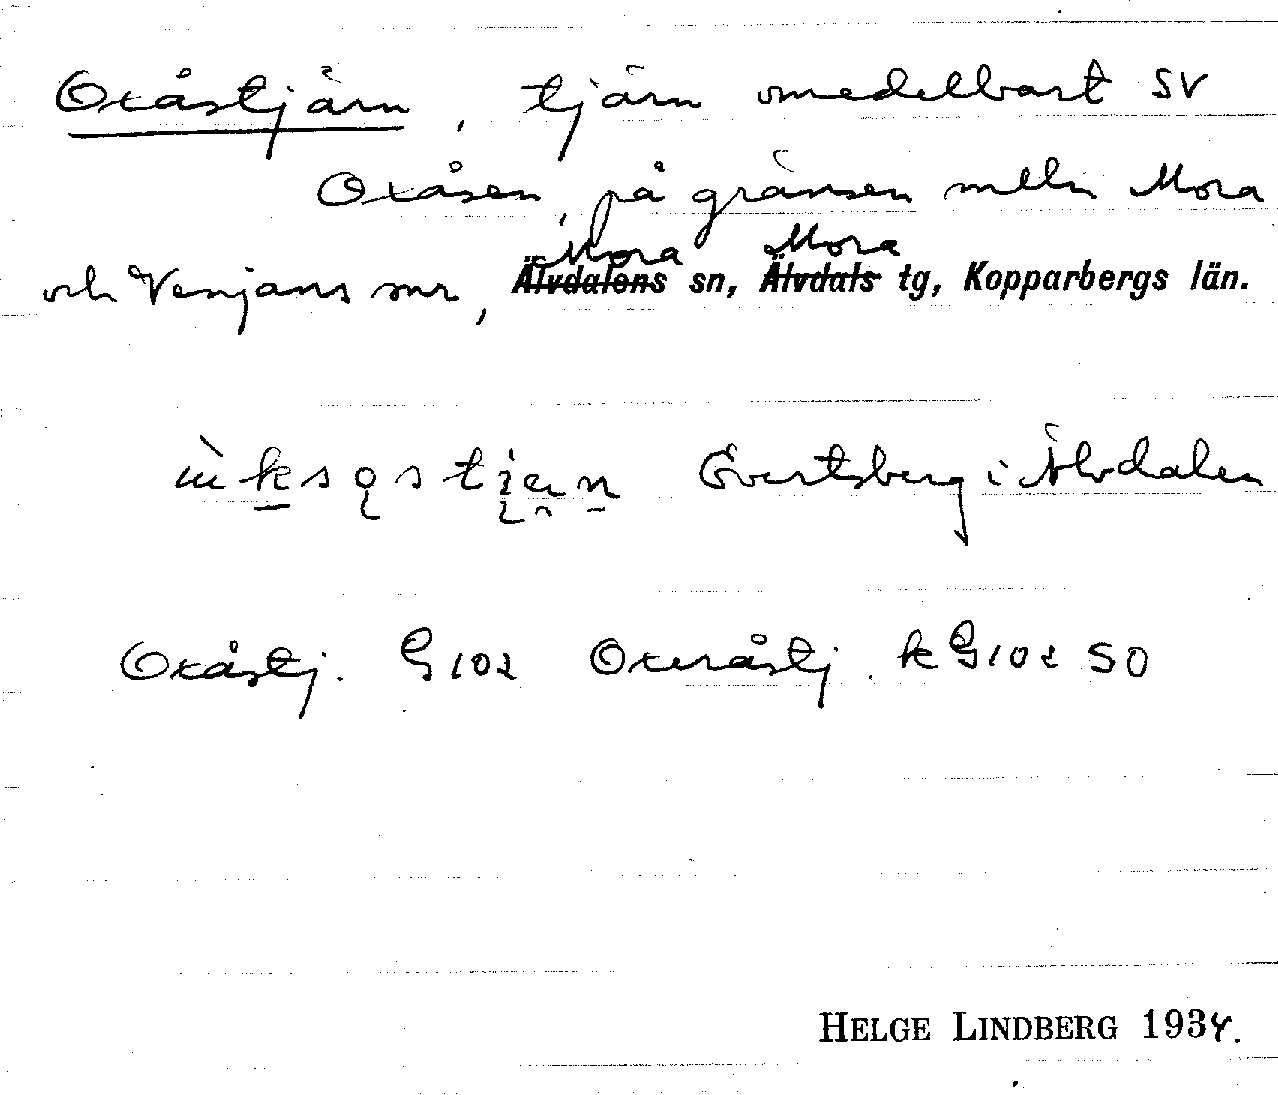 Oxåstjärn, tjärn omedelbart SV
Oxåsen, på gränsen melln Mora
Mora Mora
och Venjans snr, Älvdalens sn, Älvdals tg, Kopparbergs län.
Evertsberg i Älvdalen
Oxåstj. G102 Oxeråstj. k G102 SO
HELGE LINDBERG 1934.